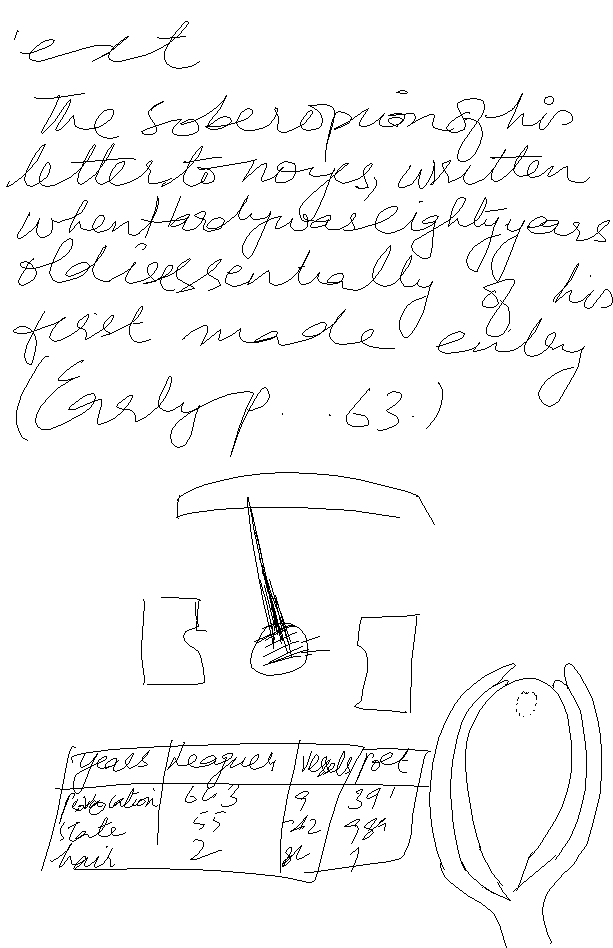 ext
The sober opnion of his
letter to noyes, written
when Hardy was eighty years
old is essentially of his
first made entry
(Early p. . . 63.)
Years Leagues Vessels Poet
663 9 39
state 55 -42
hair 2 1